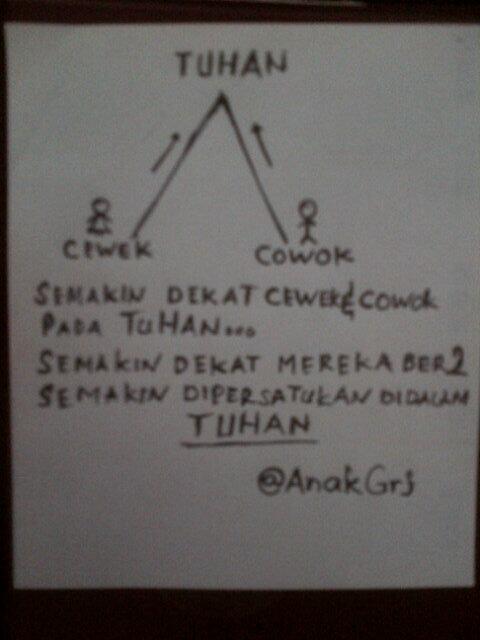 TUHAN
CEWEK
COWOK
SEMAKIN DEKAT CEWEK & COWOK
PADA TUHAN...
SEMAKIN DEKAT MEREKA BER2
SEMAKIN DIPERSATUKAN DIDALAM
TUHAN
@AnakGrj